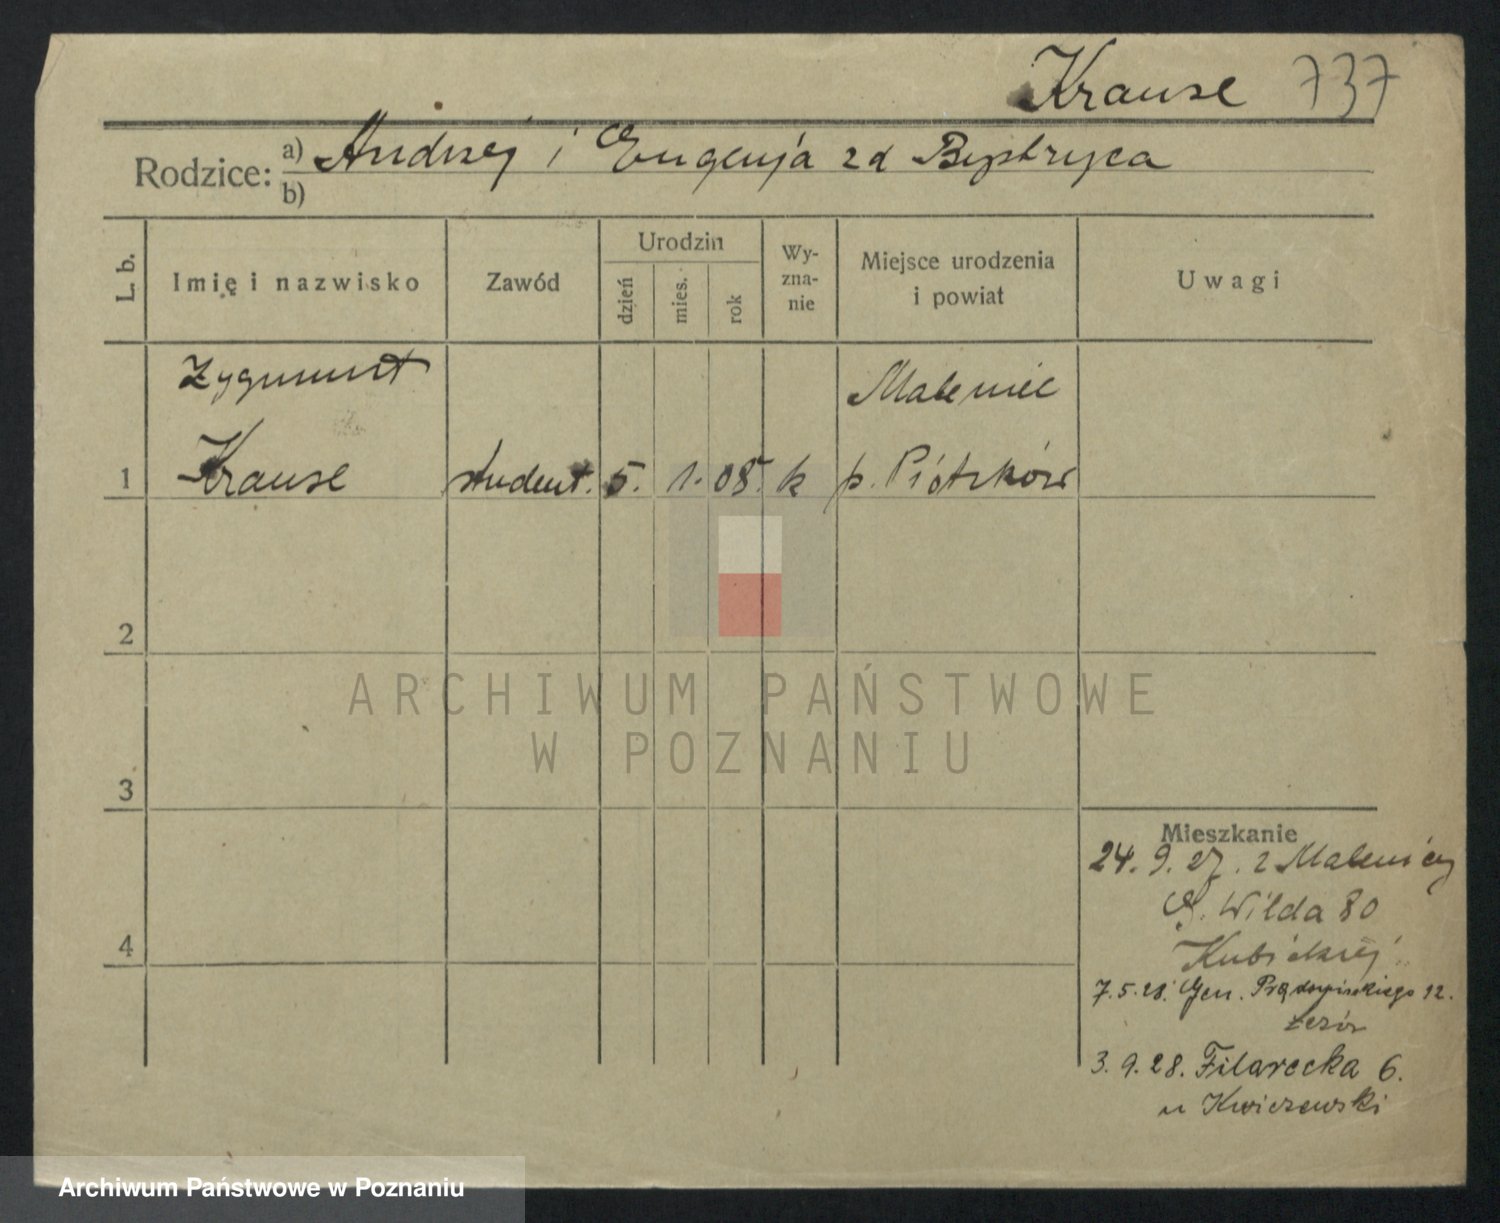 Krause 737
Rodzice: a) Andrzej i Eugenja zd Bystryca
b)
L. b.
Imię i nazwisko
Zawód
Urodzin
dzień
mies.
rok
Wy-
zna-
nie
Miejsce urodzenia
i powiat
Uwagi
Zygmunt
Maleniec
1 Krause student. 5. 1. 08. k p. Piotrków
2
ARCHIWUM PAŃSTWOWE
W POZNANIU
3
4
Mieszkanie
24. 9. 27. z Malenicy
G. Wilda 80
Kubickiej
7.5.28. Gen. Prądzyńskiego 12.
3. 9. 28. Filarecka 6.
u Kwiczewski
Archiwum Państwowe w Poznaniu